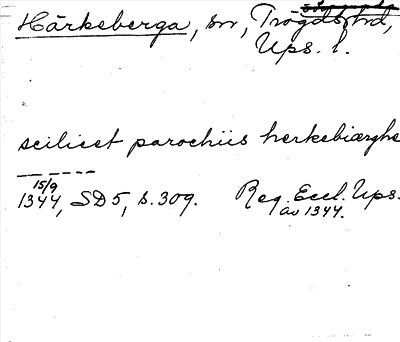 Härkeberga, sn, Trögds hd,
Ups. l.
scilicet parochiis herkebiærghe
— — - - - -
15/9
1344, SD 5, s. 309. Reg. Eccl. Ups.
av 1344.